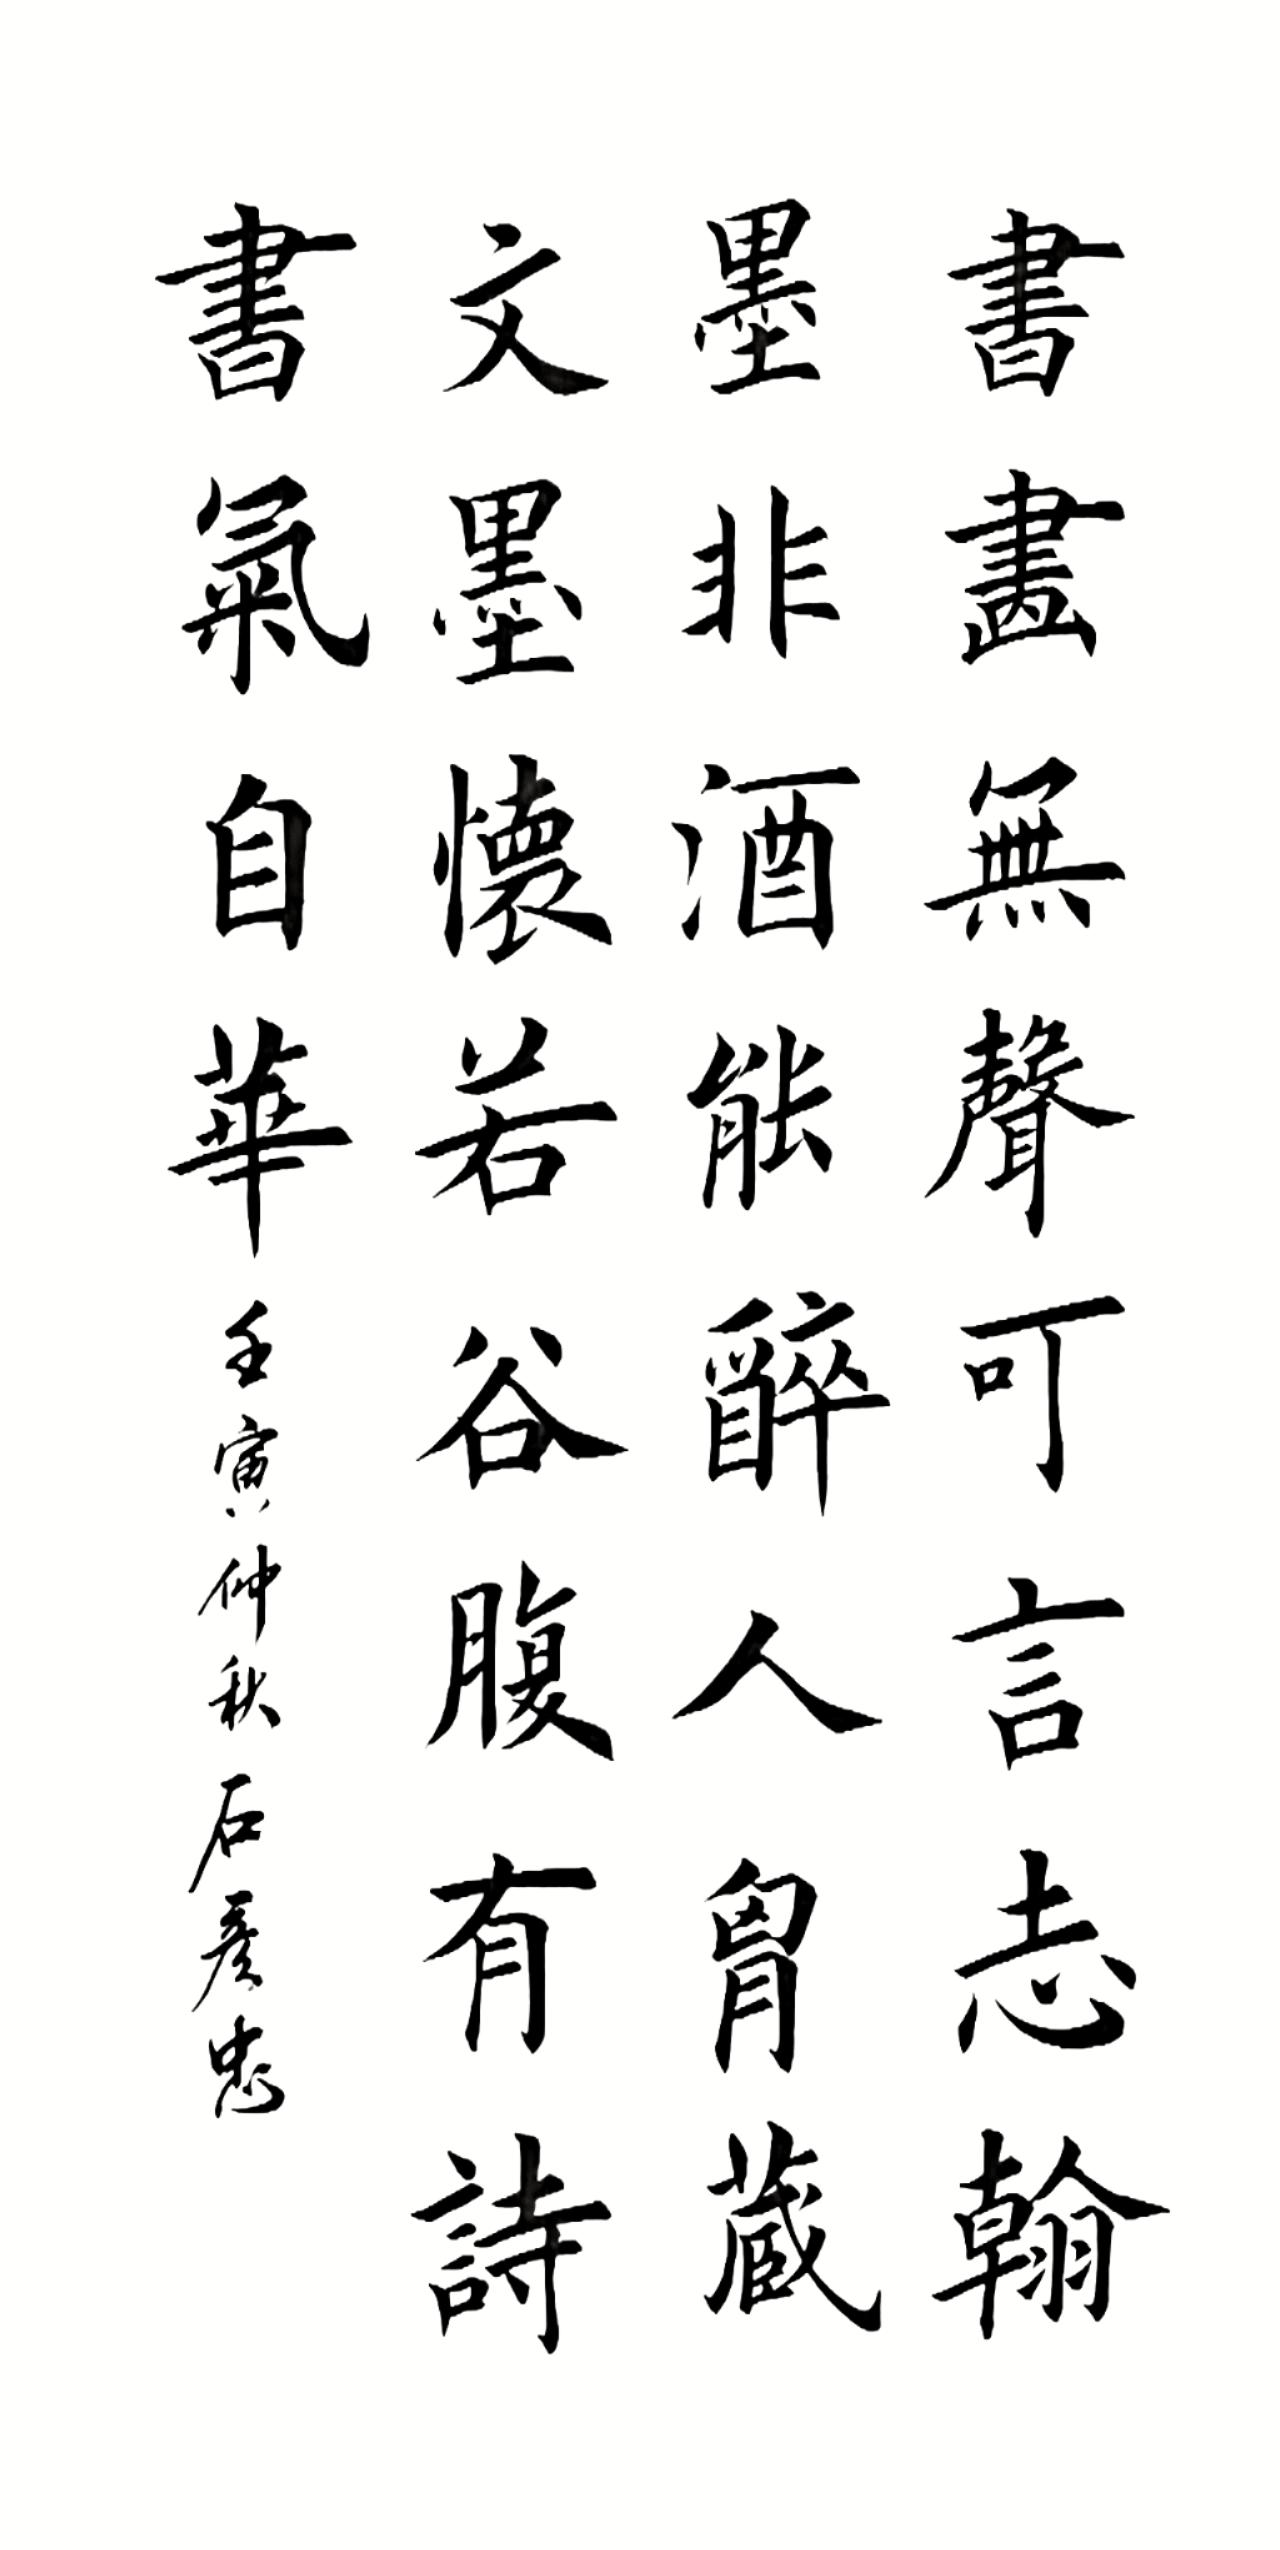 書畫無聲可言志翰
墨非酒能醉人胷蔵
文墨懷若谷腹有詩
書氣自華壬寅仲秋石彥忠